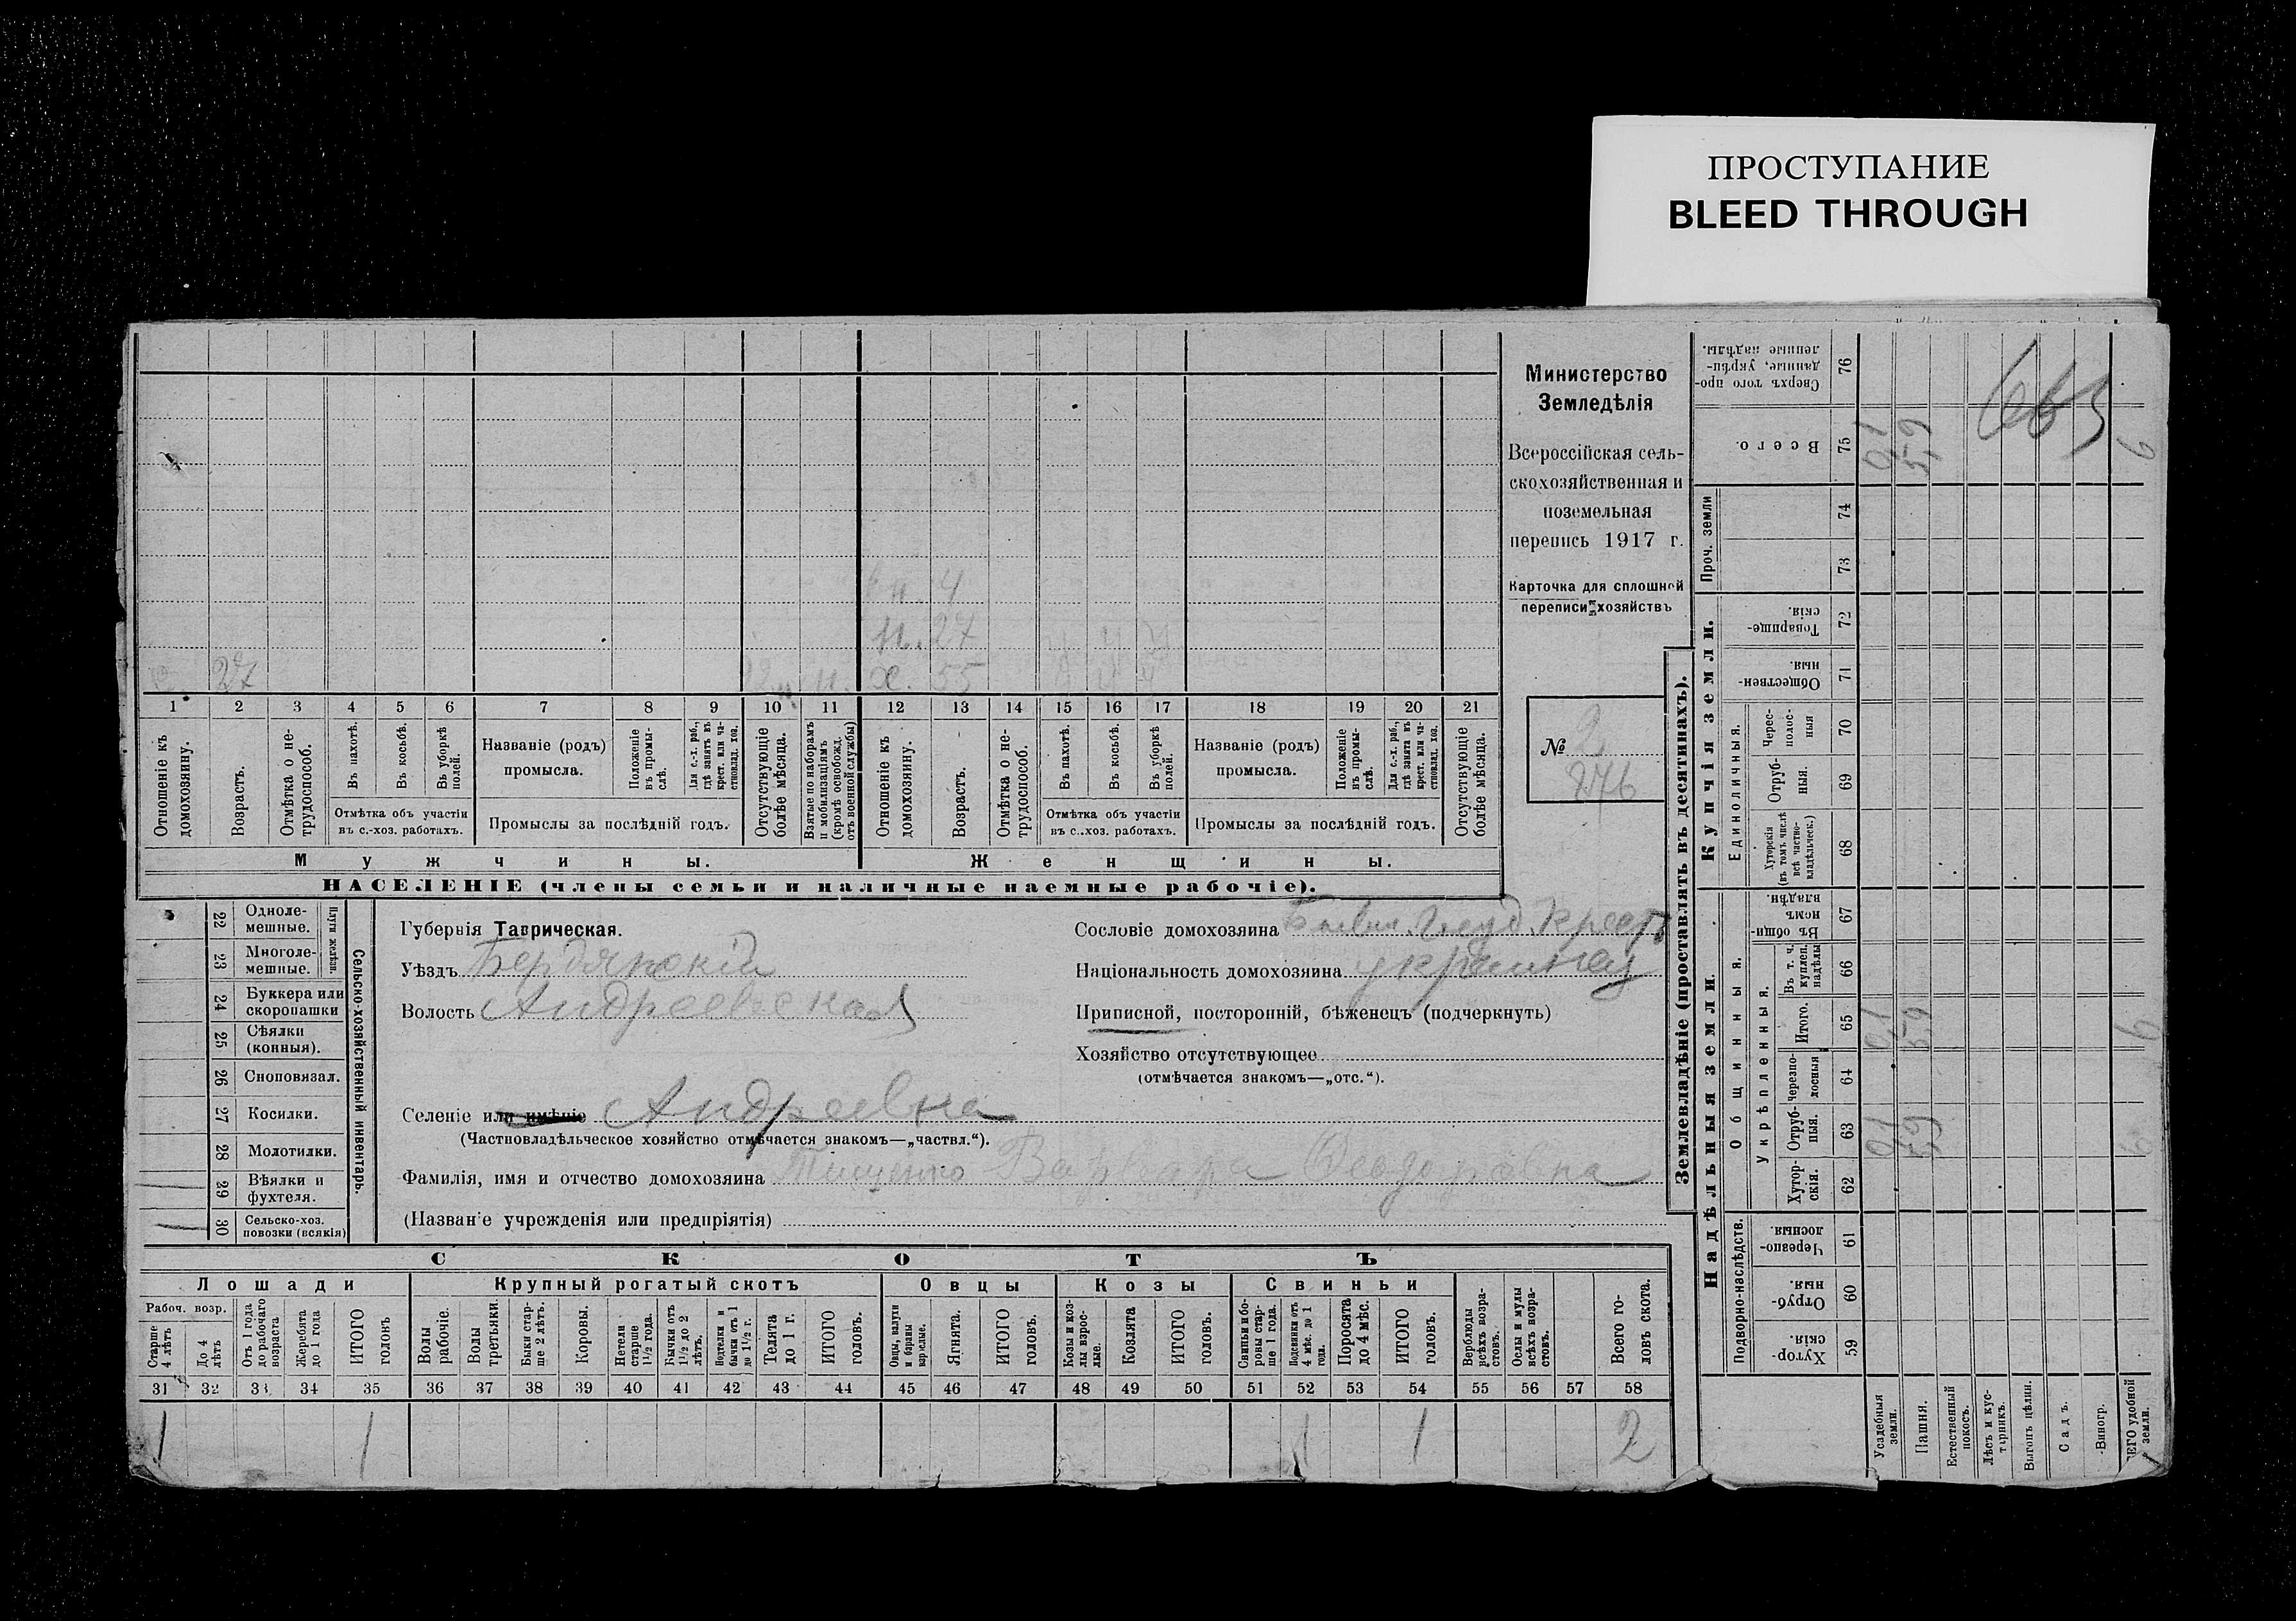 ПРОСТУПАНИЕ
BLEED THROUGH
Министерство
Земледѣлія
Всероссійская сель-
скохозяйственная и
поземельная
перепись 1917 г.
Карточка для сплошной
переписи хозяйствъ
№ 2
276
вн. 4
н. 27
27 н. х. 55
1 2 3 4 5 6 7 8 9 10 11 12 13 14 15 16 17 18 19 20 21
Отношеніе къ домохозяину.
Возрастъ.
Отмѣтка о нетрудоспособ.
Въ пахотѣ.
Въ косьбѣ.
Въ уборкѣ полей.
Отмѣтка объ участіи
въ с.-хоз. работахъ.
Названіе (родъ)
промысла.
Положеніе въ промыслѣ.
Для с.-х. раб., гдѣ занятъ въ крест. или частновлад. хоз.
Промыслы за послѣдній годъ.
Отсутствующіе болѣе мѣсяца.
Взятые по наборамъ и мобилизаціямъ (кромѣ освобожд. отъ военной службы)
Отношеніе къ домохозяину.
Возрастъ.
Отмѣтка о нетрудоспособ.
Въ пахотѣ.
Въ косьбѣ.
Въ уборкѣ полей.
Отмѣтка объ участіи
въ с.-хоз. работахъ.
Названіе (родъ)
промысла.
Положеніе въ промыслѣ.
Для с.-х. раб., гдѣ занята въ крест. или частновлад. хоз.
Промыслы за послѣдній годъ.
Отсутствующіе болѣе мѣсяца.
Мужчины.
Женщины.
НАСЕЛЕНІЕ (члены семьи и наличные наемные рабочіе).
Сельско-хозяйственный инвентарь.
Плуги желѣзн.
22 Одноле-
мешные.
23 Многоле-
мешные.
24 Буккера или
скоропашки
25 Сѣялки
(конныя).
26 Сноповязал.
27 Косилки.
28 Молотилки.
29 Вѣялки и
фухтеля.
30 Сельско-хоз.
повозки (всякія)
Губернія Таврическая.
Уѣздъ Бердянскій
Волость Андреевская
Селеніе или имѣніе Андреевка
(Частновладѣльческое хозяйство отмѣчается знакомъ—„частвл.“).
Фамилія, имя и отчество домохозяина Тищенко Варвара Феодоровна
(Названіе учрежденія или предпріятія)
Сословіе домохозяина Бывш. Госуд. Крест
Національность домохозяина украинец
Приписной, посторонній, бѣженецъ (подчеркнуть)
Хозяйство отсутствующее
(отмѣчается знакомъ—„отс.“).
СКОТЪ
Лошади
Крупный рогатый скотъ
Овцы
Козы
Свиньи
Рабоч. возр.
Старше 4 лѣтъ
До 4 лѣтъ
Отъ 1 года до рабочаго возраста
Жеребята до 1 года
ИТОГО головъ
Волы рабочіе.
Волы третьяки.
Быки старше 2 лѣтъ.
Коровы.
Нетели старше 1½ года.
Бычки отъ 1½ до 2 лѣтъ.
Подтелки и бычки отъ 1 до 1½ г.
Телята до 1 г.
ИТОГО головъ.
Овцы, валухи и бараны взрослые.
Ягнята.
ИТОГО головъ.
Козы и козлы взрослые.
Козлята
ИТОГО головъ.
Свиньи и боровы старше 1 года.
Подсвинки отъ 4 мѣс. до 1 года.
Поросята до 4 мѣс.
ИТОГО головъ.
Верблюды всѣхъ возрастовъ.
Ослы и мулы всѣхъ возрастовъ.
Всего головъ скота.
31 32 33 34 35 36 37 38 39 40 41 42 43 44 45 46 47 48 49 50 51 52 53 54 55 56 57 58
1 1 1 1 2
Землевладѣніе (проставлять въ десятинахъ).
Надѣльныя земли.
Купчія земли.
Подворно-наслѣдств.
Общинныя.
Укрѣпленныя.
Единоличныя.
Проч. земли
Сверхъ того проданные, укрѣпленные надѣлы. 76
Всего. 75 0,1 5,9 6
74
73
Товарищескія. 72
Общественныя. 71
Черезполосныя 70
Отрубныя. 69
Хуторскія (въ томъ числѣ всѣ частновладѣльческ.) 68
Въ общинномъ владѣн. 67
Въ т. ч. куплен. надѣлы 66
Итого. 65 0,1 5,9 6
Черезполосныя 64
Отрубныя. 63 0,1 5,9 6
Хуторскія. 62
Черезполосныя 61
Отрубныя. 60
Хуторскія. 59
Усадебныя земли.
Пашня.
Естественный покосъ.
Лѣсъ и кустарникъ.
Выгонъ цѣлин.
Садъ.
Виногр.
ЕГО удобной земли.